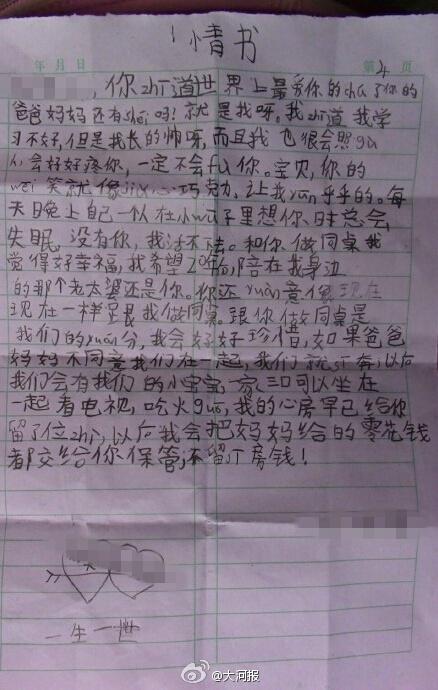 情书
年 月 日 第4页
,你zhī道世界上最爱你的chú了你的
爸爸妈妈还有shéi吗?就是我呀。我zhī道我学
习不好,但是我长的帅呀,而且我也很会照gù
人,会好好疼你,一定不会fù你。宝贝,你的
wēi笑就像jiā心巧克力,让我yūn乎乎的。每
天晚上自己一人在小wū子里想你,
失眠,没有你,我活不下去。和你做同桌我
觉得好幸福,我希望20年后,陪在我身边
的那个老太婆还是你。你还yuàn意像现在
现在一样是我做同桌。跟你做同桌是
我们的yuán分,我会好好珍惜,如果爸爸
妈妈不同意我们在一起,我们就sī奔,以后
我们会有我们的小宝宝,一家三口可以坐在
一起看电视,吃火guō,我的心房早已给你
留了位zhì,以后我会把妈妈给的零花钱
都交给你保管,不留sī房钱!
一生一世
@大河报